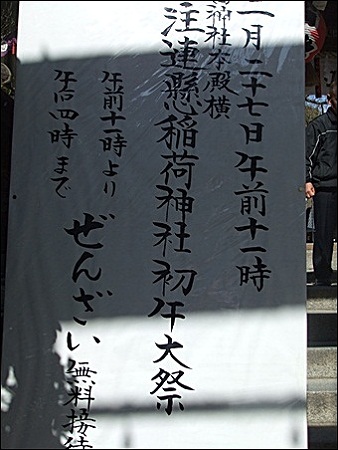 二月二十七日午前十一時
神社本殿横
注連縣稲荷神社初午大祭
午前十一時より
午后四時まで
ぜんざい無料接待